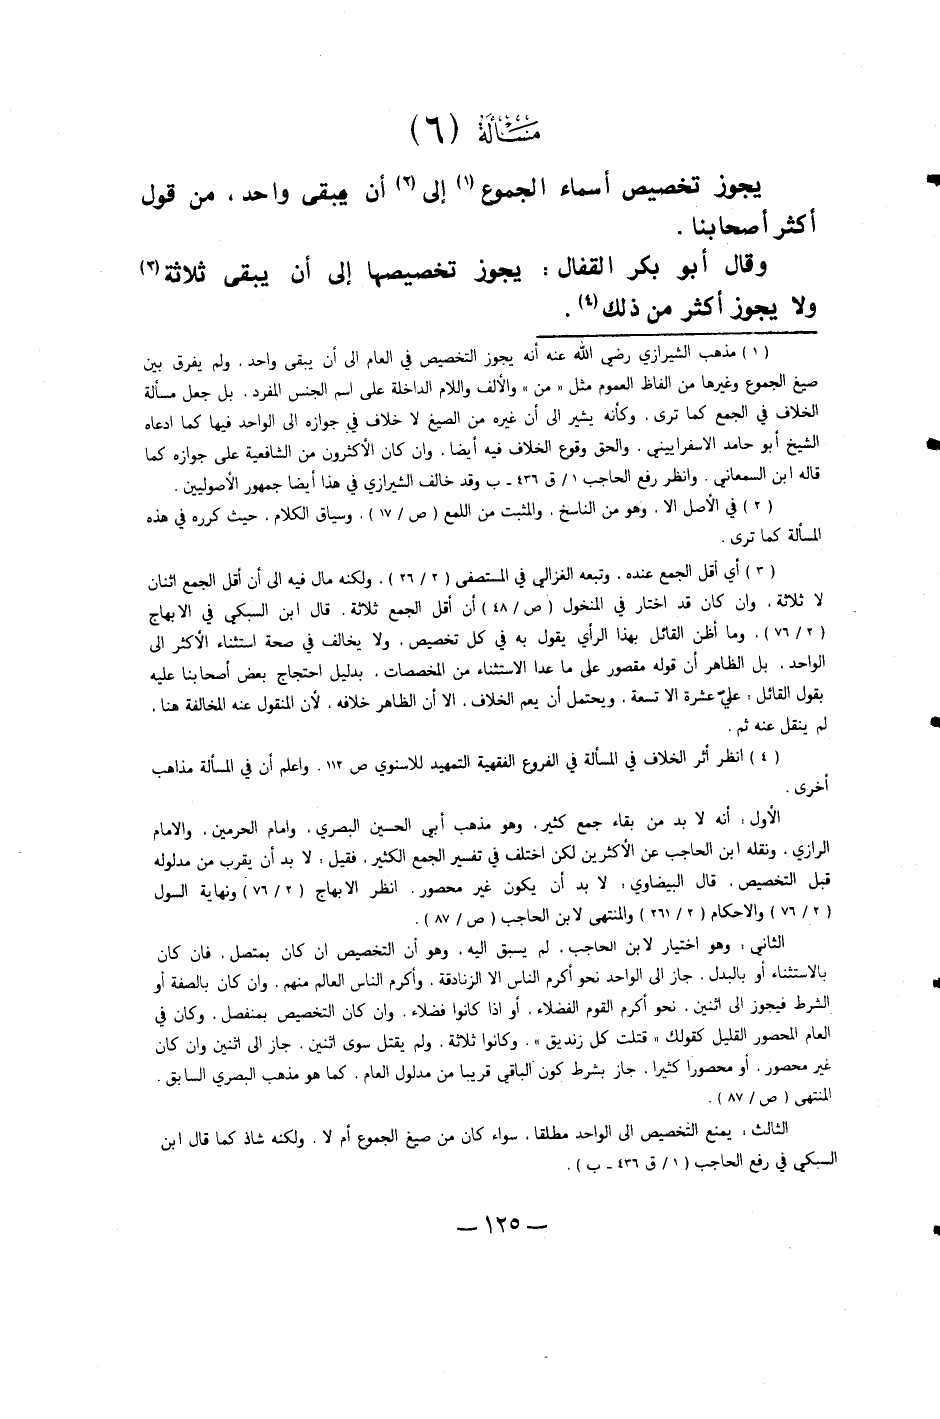 مسألة (٦)
يجوز تخصيص أسماء الجموع (١) إلى (٢) أن يبقى واحد ، من قول
أكثر أصحابنا .
وقال أبو بكر القفال : يجوز تخصيصها إلى أن يبقى ثلاثة (٣)
ولا يجوز أكثر من ذلك (٤) .
( ١ ) مذهب الشيرازي رضي الله عنه أنه يجوز التخصيص في العام الى أن يبقى واحد . ولم يفرق بين
صيغ الجموع وغيرها من الفاظ العموم مثل « من » والألف واللام الداخلة على اسم الجنس المفرد . بل جعل مسألة
الخلاف في الجمع كما ترى . وكأنه يشير الى أن غيره من الصيغ لا خلاف في جوازه الى الواحد فيها كما ادعاه
الشيخ أبو حامد الاسفراييني . والحق وقوع الخلاف فيه أيضا . وان كان الأكثرون من الشافعية على جوازه كما
قاله ابن السمعاني . وانظر رفع الحاجب ١ / ق ٤٣٦ ـ ب وقد خالف الشيرازي في هذا أيضا جمهور الأصوليين .
( ٢ ) في الأصل الا . وهو من الناسخ . والمثبت من اللمع ( ص / ١٧ ) . وسياق الكلام . حيث كرره في هذه
المسألة كما ترى .
( ٣ ) أي أقل الجمع عنده . وتبعه الغزالي في المستصفى ( ٢ / ٢٦ ) . ولكنه مال فيه الى أن أقل الجمع اثنان
لا ثلاثة . وان كان قد اختار في المنخول ( ص / ٤٨ ) أن أقل الجمع ثلاثة . قال ابن السبكي في الابهاج
( ٢ / ٧٦ ) . وما أظن القائل بهذا الرأي يقول به في كل تخصيص . ولا يخالف في صحة استثناء الأكثر الى
الواحد . بل الظاهر أن قوله مقصور على ما عدا الاستثناء من المخصصات . بدليل احتجاج بعض أصحابنا عليه
بقول القائل : عليّ عشرة الا تسعة . ويحتمل أن يعم الخلاف . الا أن الظاهر خلافه . لأن المنقول عنه المخالفة هنا .
لم ينقل عنه ثم .
( ٤ ) انظر أثر الخلاف في المسألة في الفروع الفقهية التمهيد للاسنوي ص ١١٢ . واعلم أن في المسألة مذاهب
أخرى .
الأول : أنه لا بد من بقاء جمع كثير . وهو مذهب أبي الحسين البصري . وامام الحرمين . والامام
الرازي . ونقله ابن الحاجب عن الأكثرين لكن اختلف في تفسير الجمع الكثير . فقيل : لا بد أن يقرب من مدلوله
قبل التخصيص . قال البيضاوي : لا بد أن يكون غير محصور . انظر الابهاج ( ٢ / ٧٦ ) ونهاية السول
( ٢ / ٧٦ ) والاحكام ( ٢ / ٢٦١ ) والمنتهى لابن الحاجب ( ص / ٨٧ ) .
الثاني : وهو اختيار لابن الحاجب . لم يسبق اليه . وهو أن التخصيص ان كان بمتصل . فان كان
بالاستثناء أو بالبدل . جاز الى الواحد نحو أكرم الناس الا الزنادقة . وأكرم الناس العالم منهم . وان كان بالصفة أو
الشرط فيجوز الى اثنين . نحو أكرم القوم الفضلاء . أو اذا كانوا فضلاء . وان كان التخصيص بمنفصل . وكان في
العام المحصور القليل كقولك « قتلت كل زنديق » . وكانوا ثلاثة . ولم يقتل سوى اثنين . جاز الى اثنين وان كان
غير محصور . أو محصورا كثيرا . جاز بشرط كون الباقي قريبا من مدلول العام . كما هو مذهب البصري السابق .
المنتهى ( ص / ٨٧ ) .
الثالث : يمنع التخصيص الى الواحد مطلقا . سواء كان من صيغ الجموع أم لا . ولكنه شاذ كما قال ابن
السبكي في رفع الحاجب ( ١ / ق ٤٣٦ ـ ب ) .
— ١٢٥ —